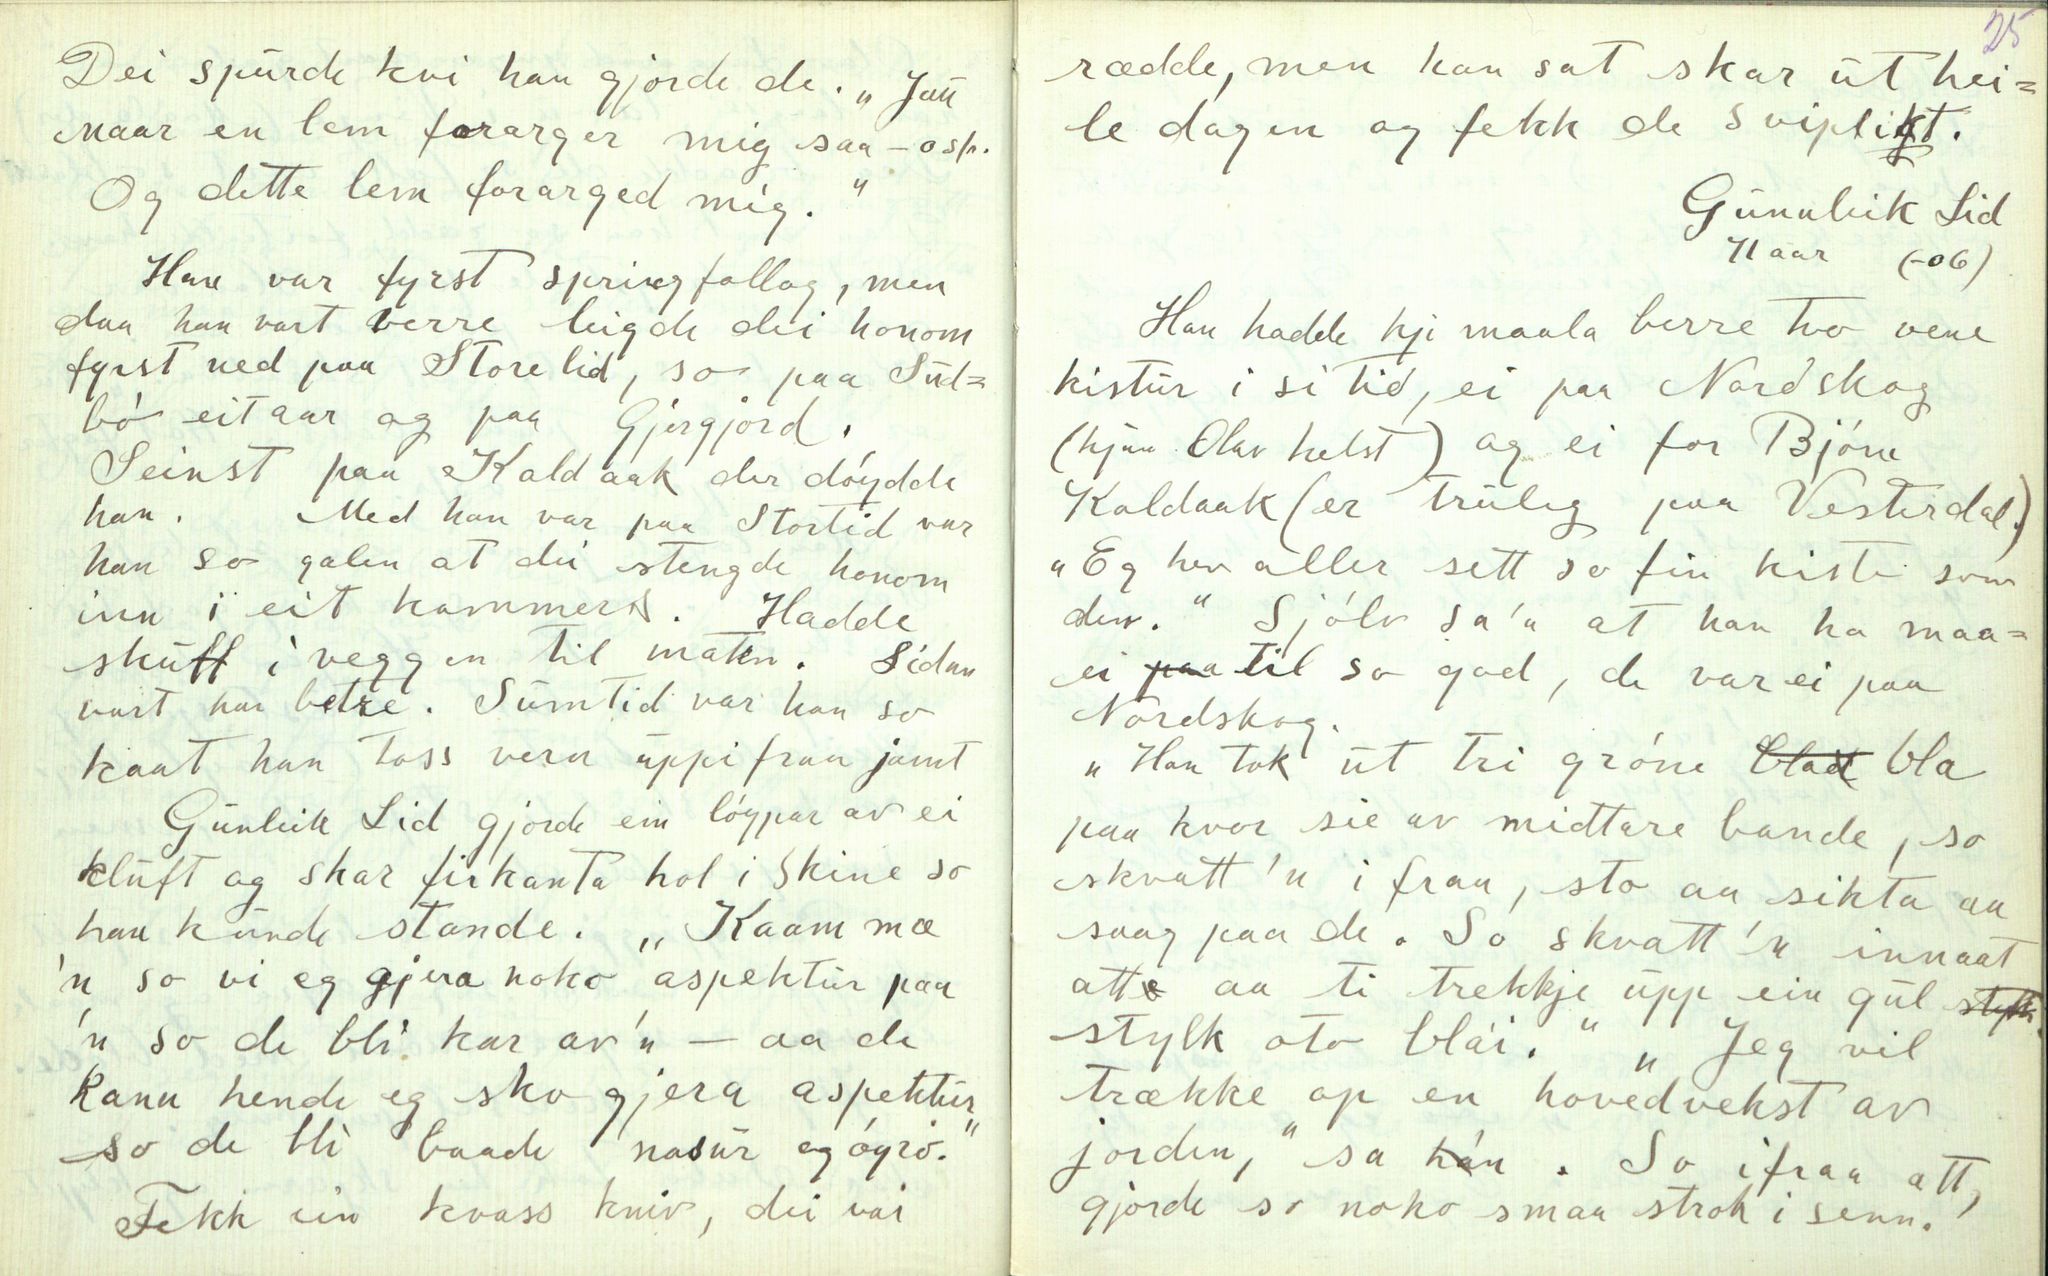 Dei spurde kvi han gjorde de. „Jau
naar en lem forarger mig saa – osv.
Og dette lem forarged mig."
Han var fyrst springfallog, men
daa han vart verre leigde dei honom
fyrst ned paa Storelid, so paa Sud=
bó eit aar og paa Gjersgjord.
Seinst paa Kaldaak der dóydde
han. Med han var paa Storlid var
han so galen at dei stengde honom
inn i eit kammers. Hadde
skuff i veggen til maten. Sidan
vart han betre. Sumtid var han so
kaat han toss vera uppifraa jamt
Gunleik Lid gjorde ein lóypar av ei
kluft og skar firkanta hol i skine so
han kunde stande. „Kaam mæ
'n so vi eg gjera noko aspektur paa
'n so de bli kar av'n – aa de
kann hende eg sko gjera aspektur
so de bli baade nasur og óyró."
Fekk ein kvass kniv, dei vai
25
rædde, men han sat skar ut hei=
le dagen og fekk de svipligt.
Gunnleik Lid
71 aar (-06)
Han hadde kji maala berre tvo vene
kistur i si tid, ei paa Nordskog
(hjaa Olav helst) og ei for Bjóne
Kaldaak (er truleg paa Vesterdal.)
„Eg hev aller sett so fin kiste som
den." Sjólv sa'n at han ha maa=
ei paa til so god, de var ei paa
Nordskog.
„Han tok ut tri gróne blad bla
paa kvor sie av midtare bande, so
skvatt 'n ifraa, sto aa sikta aa
saag paa de. So skvatt 'n innaat
atte aa ti trekkje upp ein gul
stylk oto blái." „Jeg vil
trække op en hovedvekst av
jorden," sa hán. So ifraa att,
gjorde so noko smaa strok i senn.'